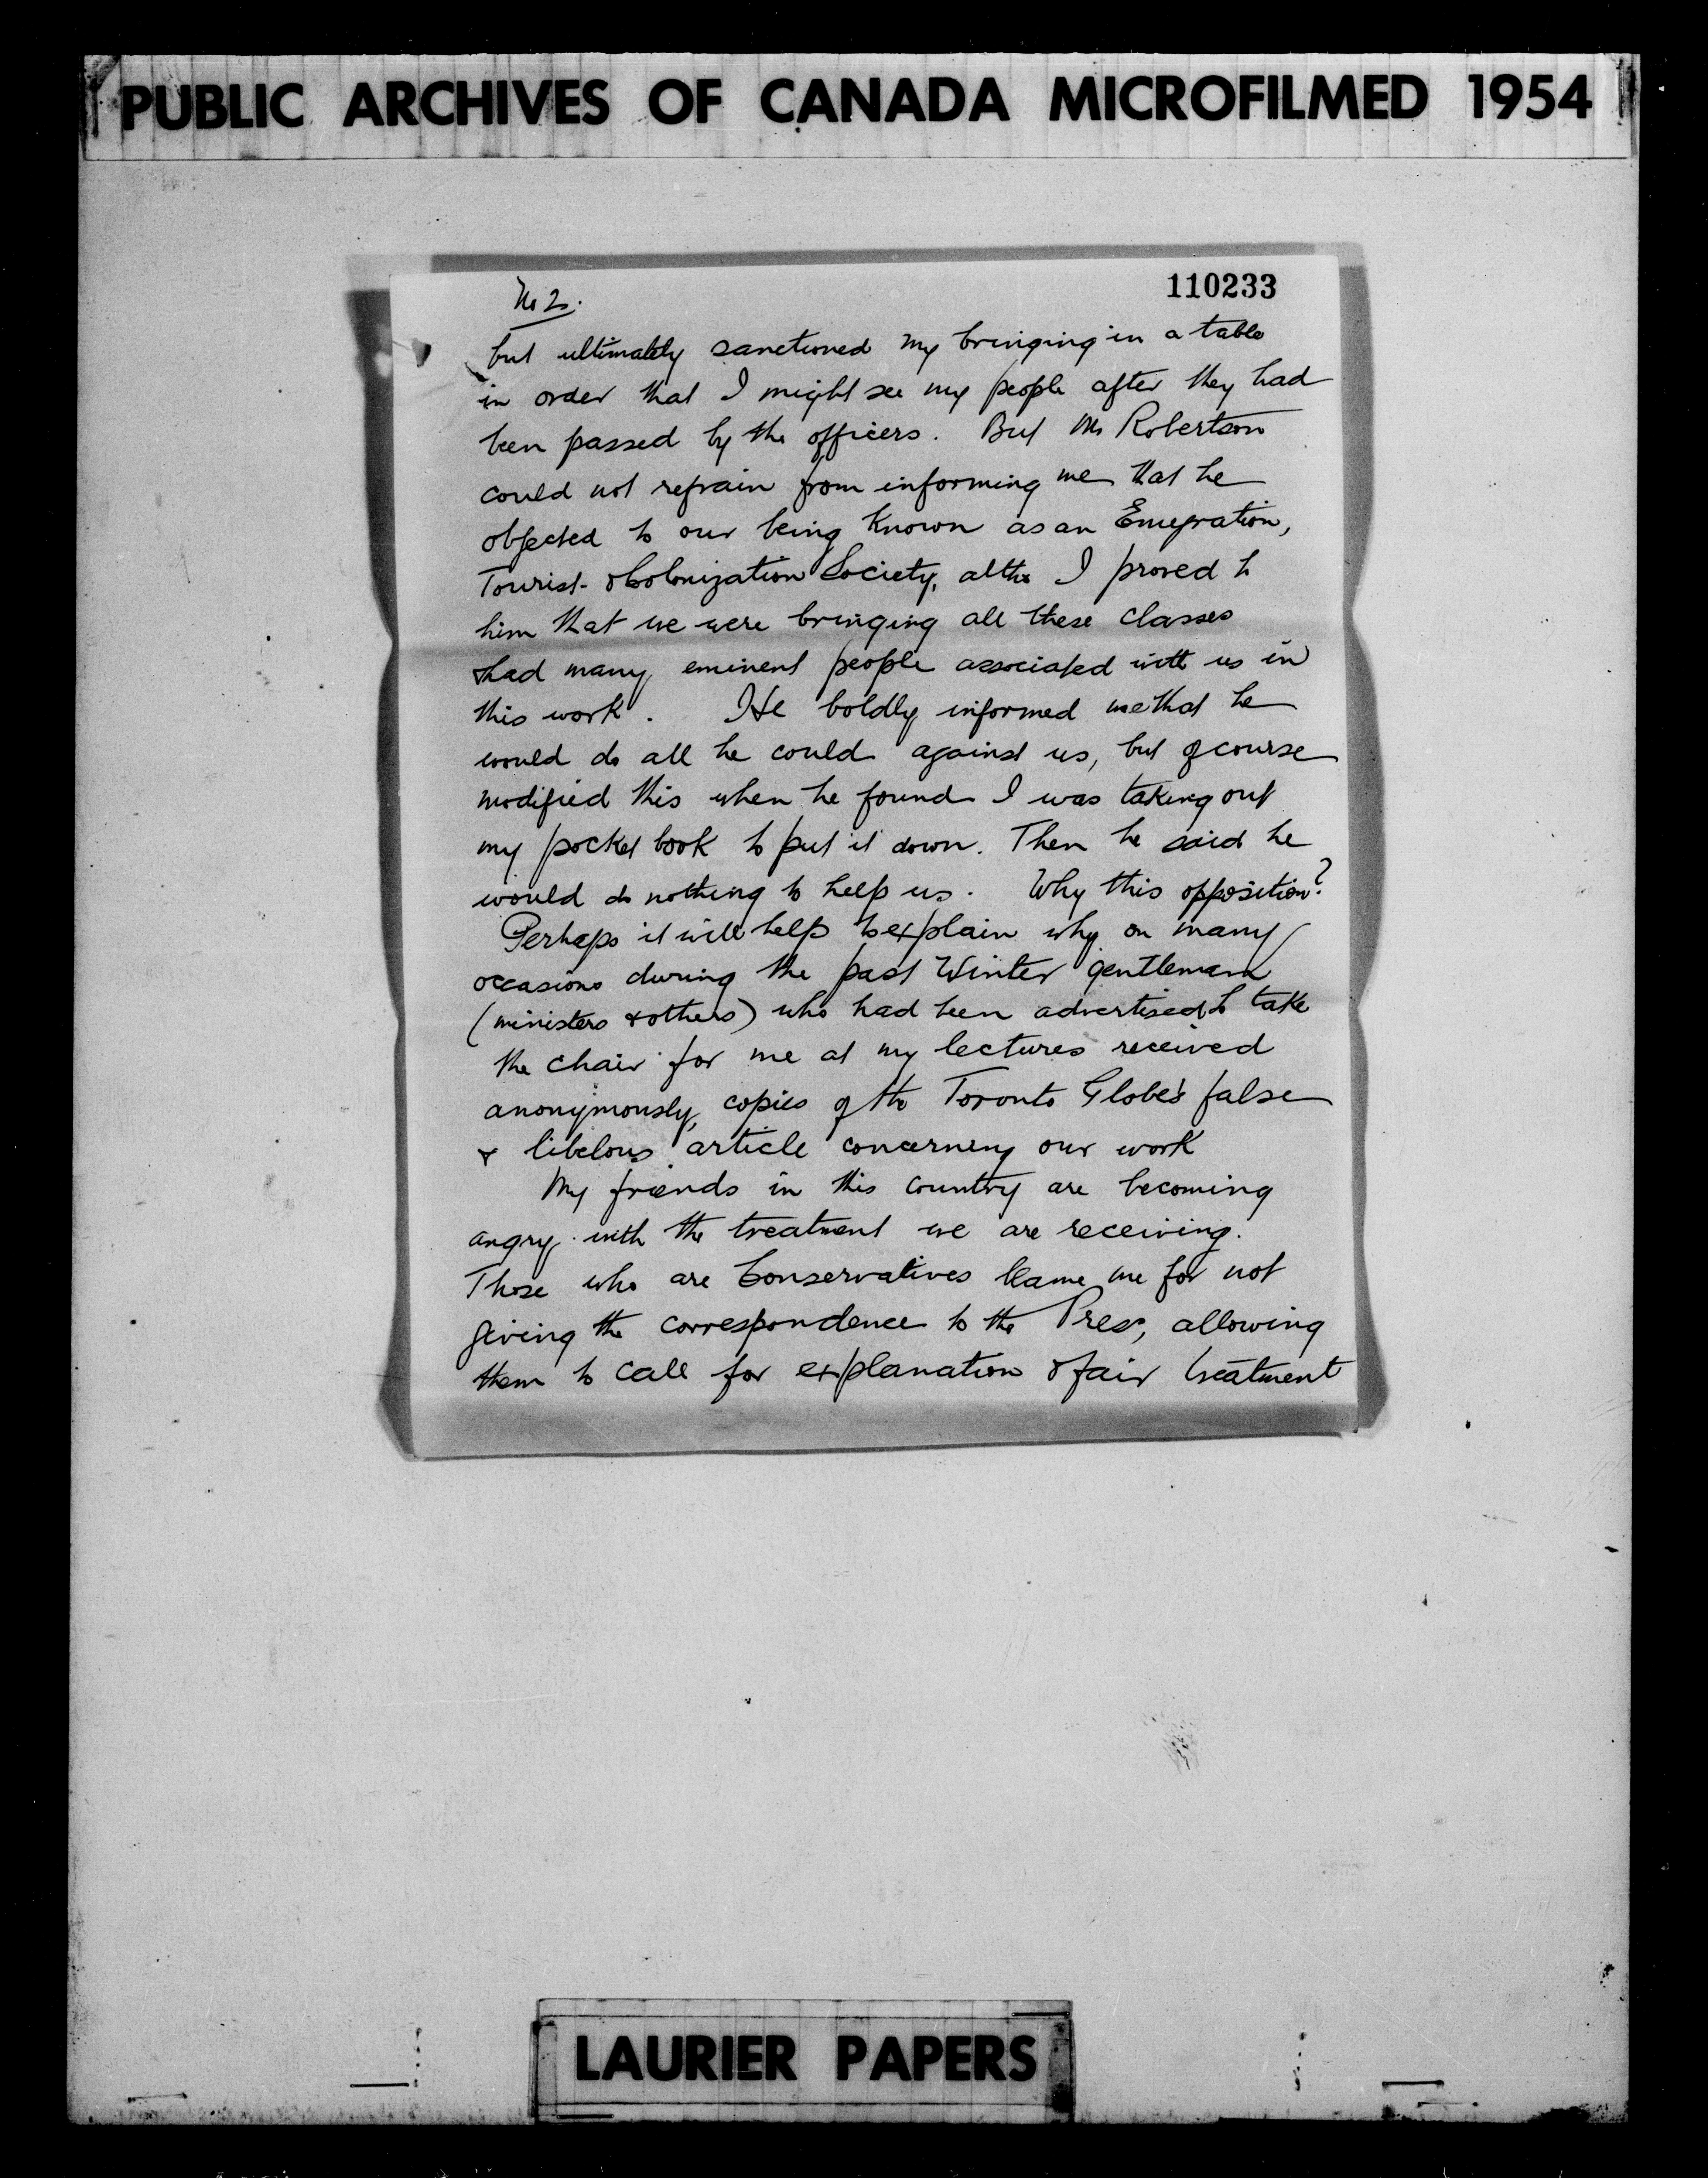 PUBLIC ARCHIVES OF CANADA MICROFILMED 1954
110233
No 2.
but ultimately sanctioned my bringing in a table
in order that I might see my people after they had
been passed by the officers. But Mr Robertson
could not refrain from informing me that he
objected to our being known as an Emigration,
Tourist & Colonization Society, altho I proved to
him that we were bringing all these classes
& had many eminent people associated with us in
this work. He boldly informed me that he
would do all he could against us, but of course
modified this when he found I was taking out
my pocket book to put it down. Then he said he
would do nothing to help us. Why this opposition?
Perhaps it will help to explain why on many
occasions during the past Winter gentlemen
(ministers & others) who had been advertised to take
the chair for me at my lectures received
anonymously, copies of the Toronto Globe's false
& libelous article concerning our work
My friends in this country are becoming
angry with the treatment we are receiving.
Those who are Conservatives blame me for not
giving the correspondence to the Press, allowing
them to call for explanation & fair treatment
LAURIER PAPERS